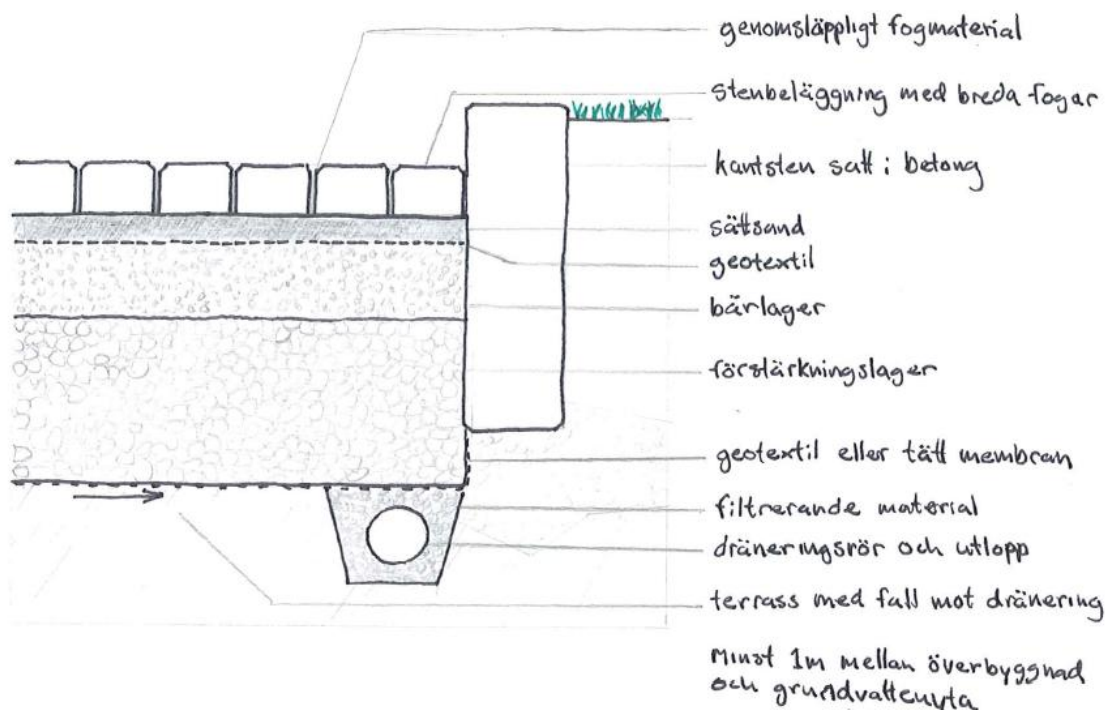 genomsläppligt fogmaterial
stenbeläggning med breda fogar
kantsten satt i betong
sättsand
geotextil
bärlager
förstärkningslager
geotextil eller tätt membran
filtrerande material
dräneringsrör och utlopp
terrass med fall mot dränering
Minst 1m mellan överbyggnad
och grundvattenyta